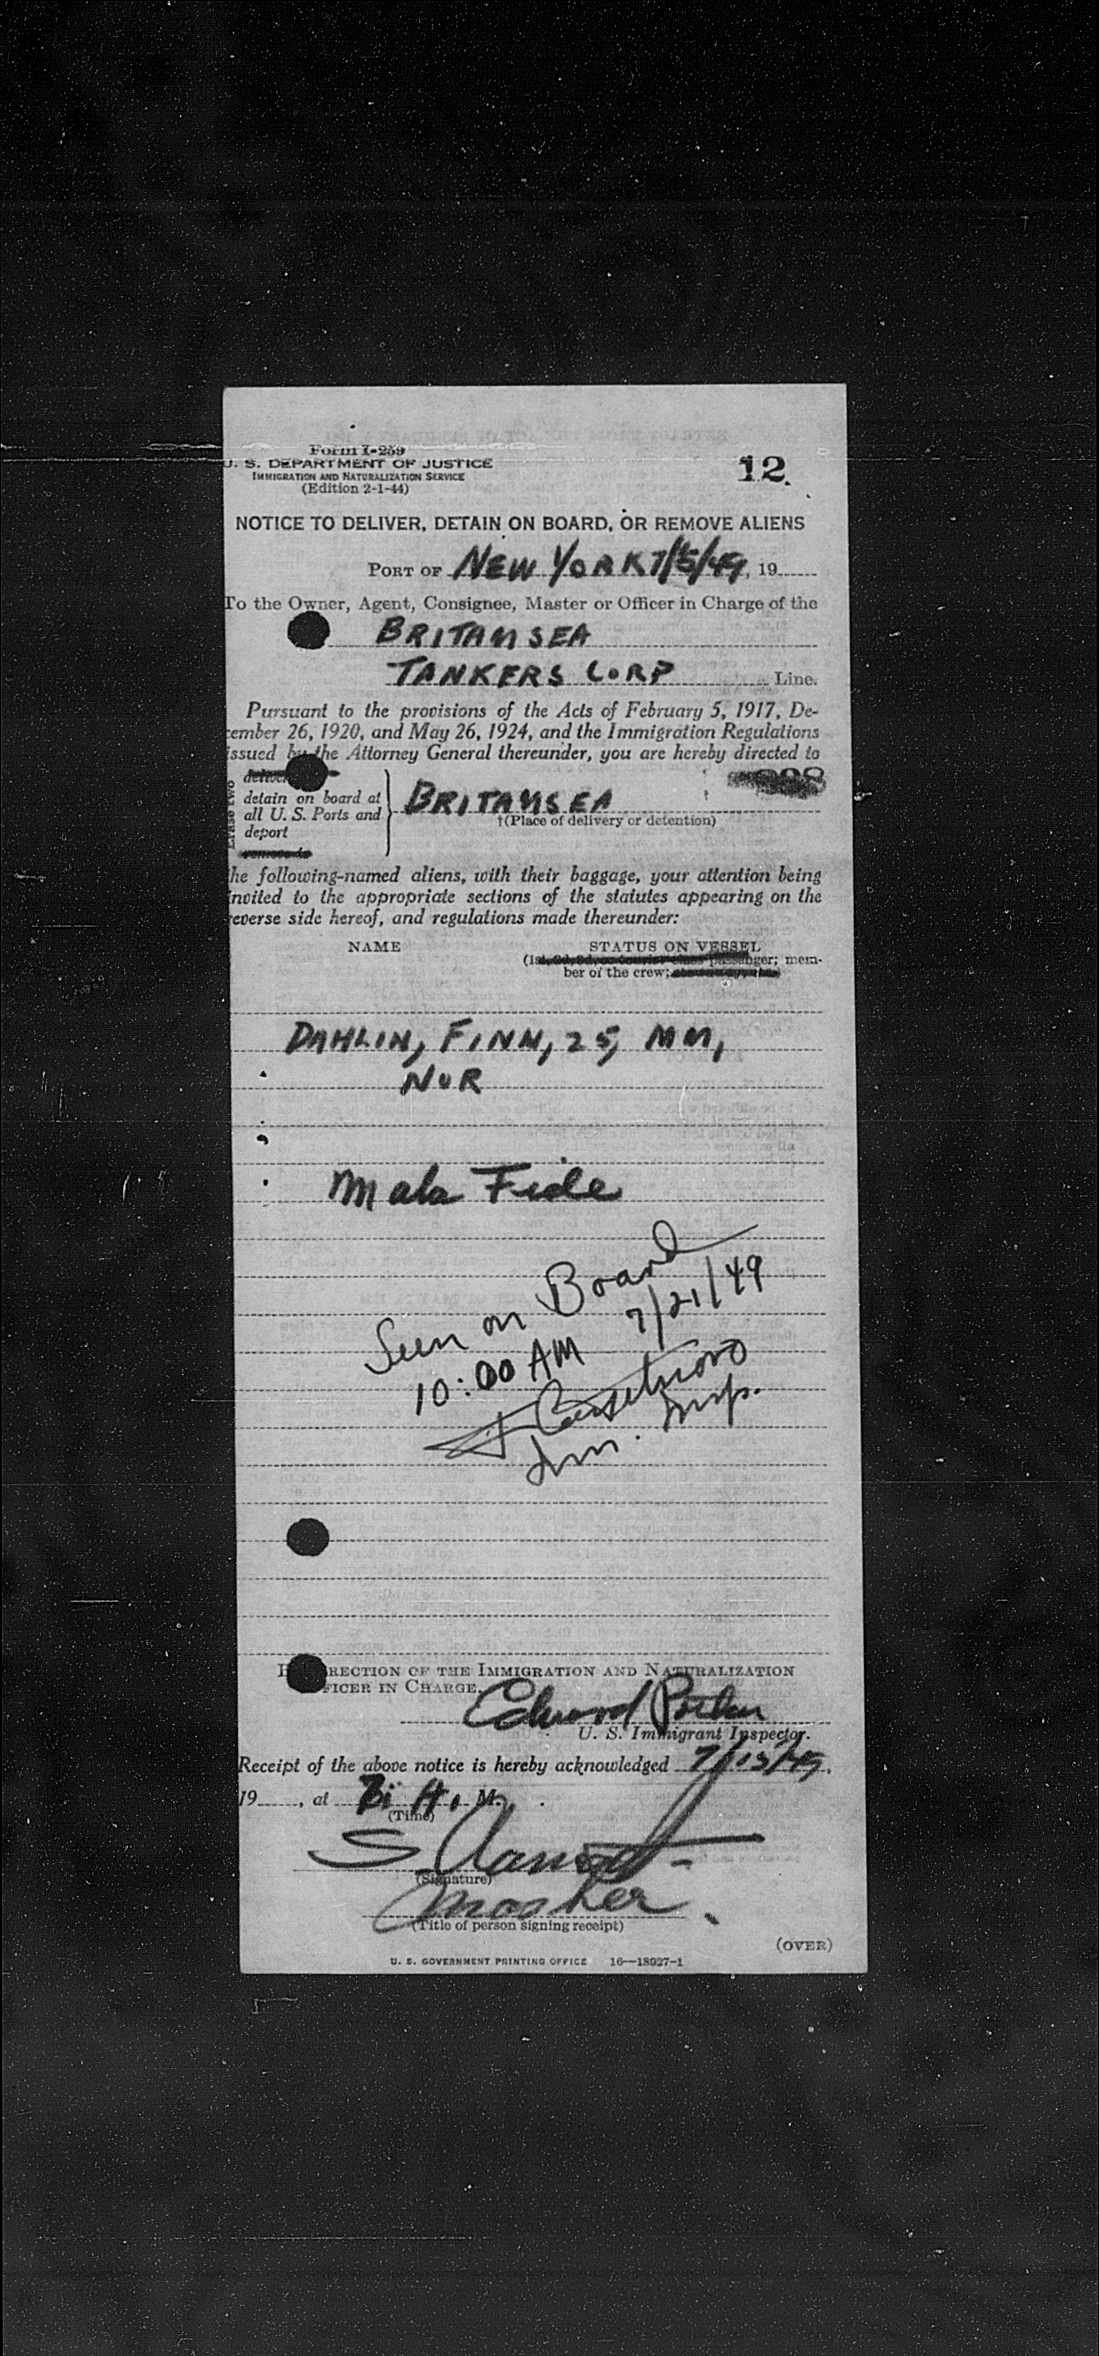 Form I-259
U. S. DEPARTMENT OF JUSTICE
IMMIGRATION AND NATURALIZATION SERVICE
(Edition 2-1-44)
12
NOTICE TO DELIVER, DETAIN ON BOARD, OR REMOVE ALIENS
PORT OF NEW YORK 7/5/49, 19
To the Owner, Agent, Consignee, Master or Officer in Charge of the
BRITAMSEA
TANKERS CORP Line.
Pursuant to the provisions of the Acts of February 5, 1917, De-
cember 26, 1920, and May 26, 1924, and the Immigration Regulations
issued by the Attorney General thereunder, you are hereby directed to
Erase two
detain on board at
all U. S. Ports and
deport
BRITAMSEA
†(Place of delivery or detention)
the following-named aliens, with their baggage, your attention being
invited to the appropriate sections of the statutes appearing on the
reverse side hereof, and regulations made thereunder:
NAME STATUS ON VESSEL
(1st, 2d, 3d, or tourist class passenger; mem-
ber of the crew;
DAHLIN, FINN, 25, MM,
NOR
Mala Fide
Seen on Board
10:00 AM 7/21/49
Im. Insp.
DIRECTION OF THE IMMIGRATION AND NATURALIZATION
OFFICER IN CHARGE.
Edward
U. S. Immigrant Inspector.
Receipt of the above notice is hereby acknowledged
19, at M.
(Time)
S
(Signature)
Master
(Title of person signing receipt)
(OVER)
U. S. GOVERNMENT PRINTING OFFICE 16—18027-1